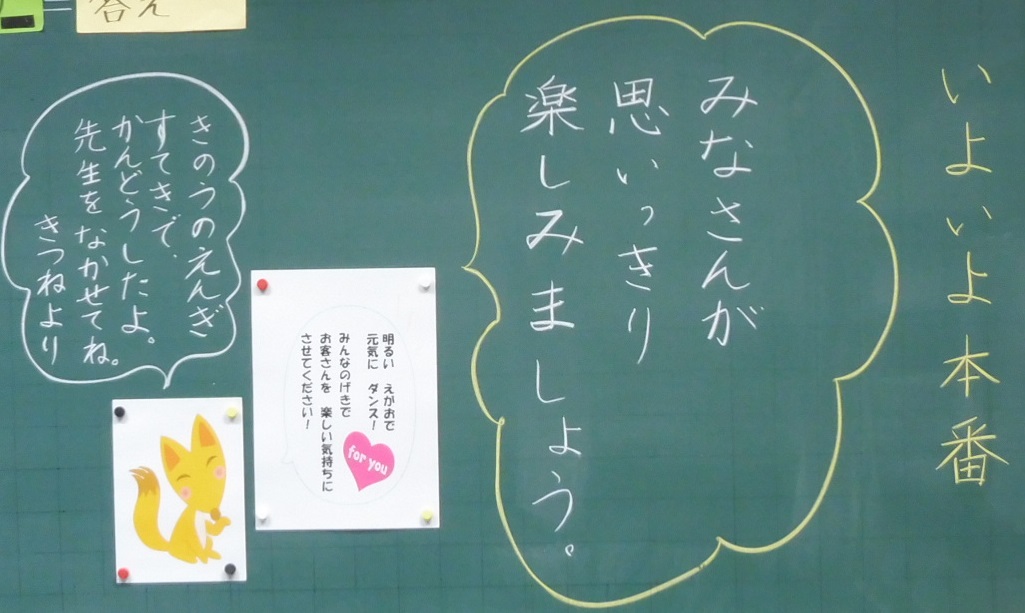 いよいよ本番
みなさんが
思いっきり
楽しみましょう。
明るい えがおで
元気に ダンス!
みんなのげきで
お客さんを 楽しい気持ちに
させてください!
for you
きのうのえんぎ
すてきで、
かんどうしたよ。
先生をなかせてね。
きつねより
= 答え